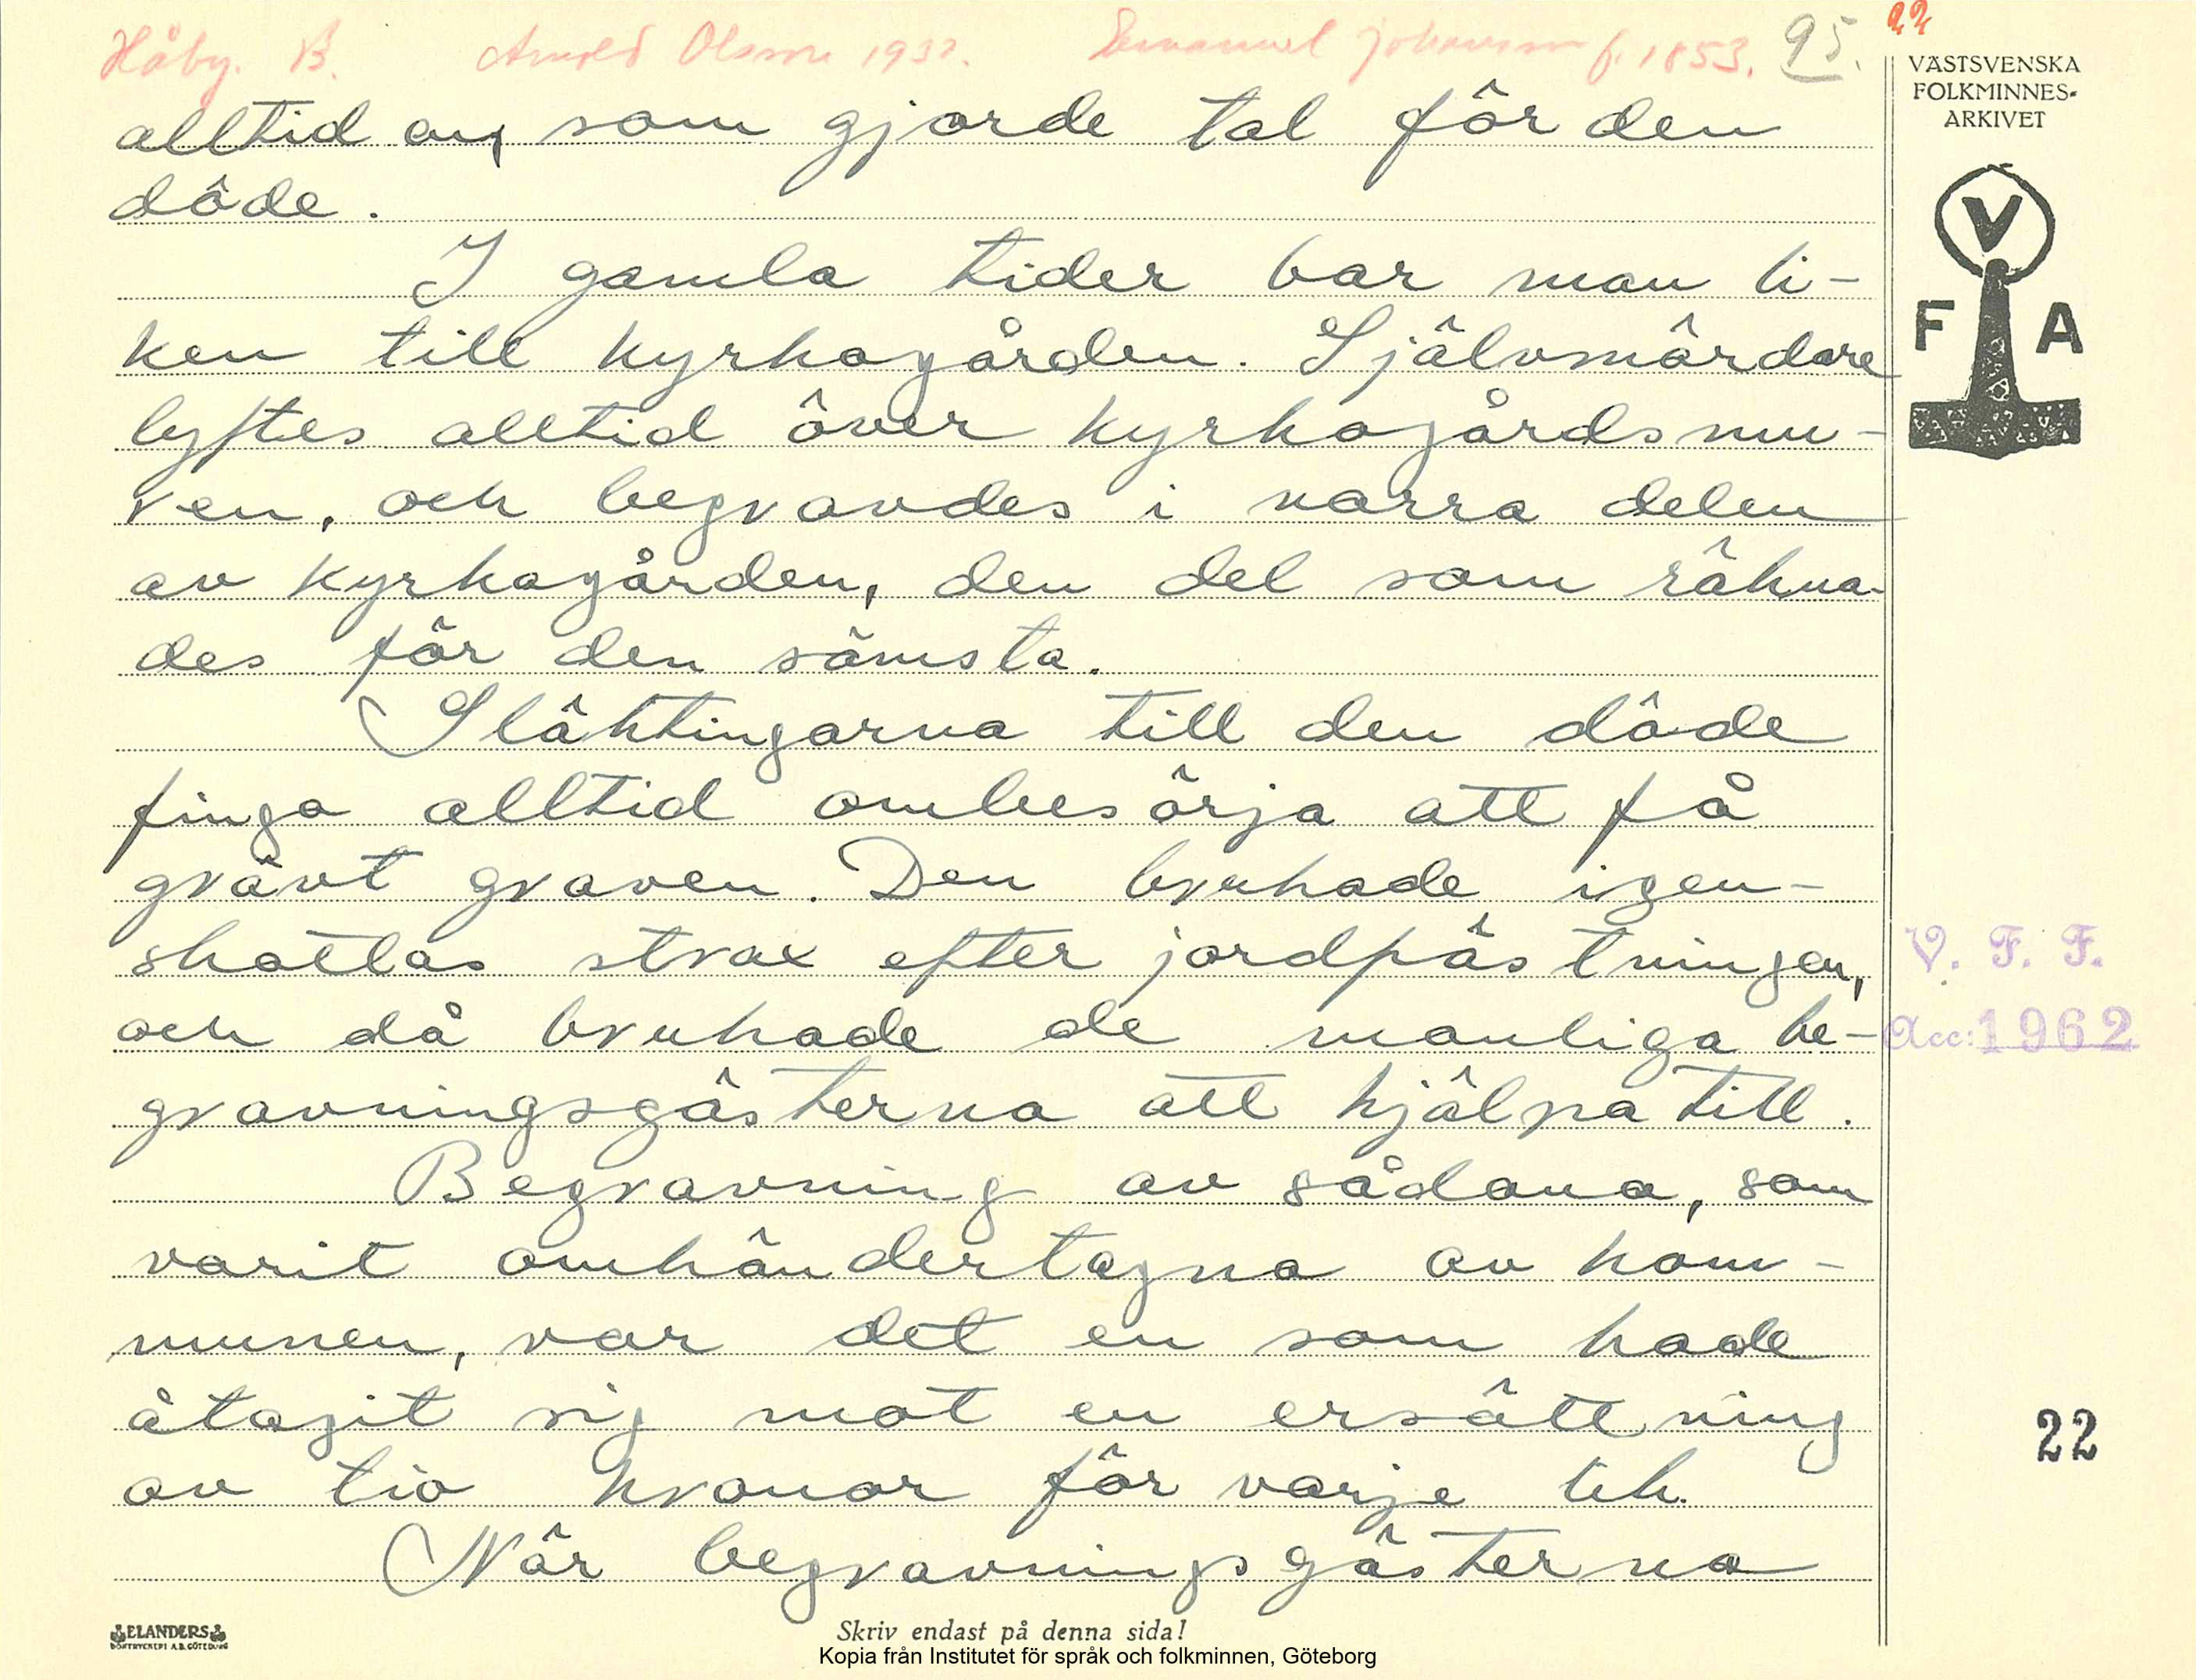 Håby. B. Arnold Olsson 1932. Emanuel Johansson f. 1853. 95. 22
VÄSTSVENSKA
FOLKMINNES-
ARKIVET
V
F A
alltid en, som gjorde tal för den
döde.
I gamla tider bar man li-
ken till kyrkogården. Självmördare
lyftes alltid över kyrkogårdsmu-
ren, och begravdes i norra delen
av kyrkogården, den del som räkna-
des för den sämsta.
Släktingarna till den döde
finga alltid ombesörja att få
grävt graven. Den brukade igen-
skottas strax efter jordfästningen,
och då brukade de manliga be-
gravningsgästerna att hjälpa till.
Begravning av sådana, som
varit omhändertagna av kom-
munen, var det en som hade
åtagit sig mot en ersättning
av tio kronor för varje lik.
När begravningsgästerna
V. F. F.
Acc: 1962
22
ELANDERS
BOKTRYCKERI A.B. GÖTEBORG
Skriv endast på denna sida!
Kopia från Institutet för språk och folkminnen, Göteborg